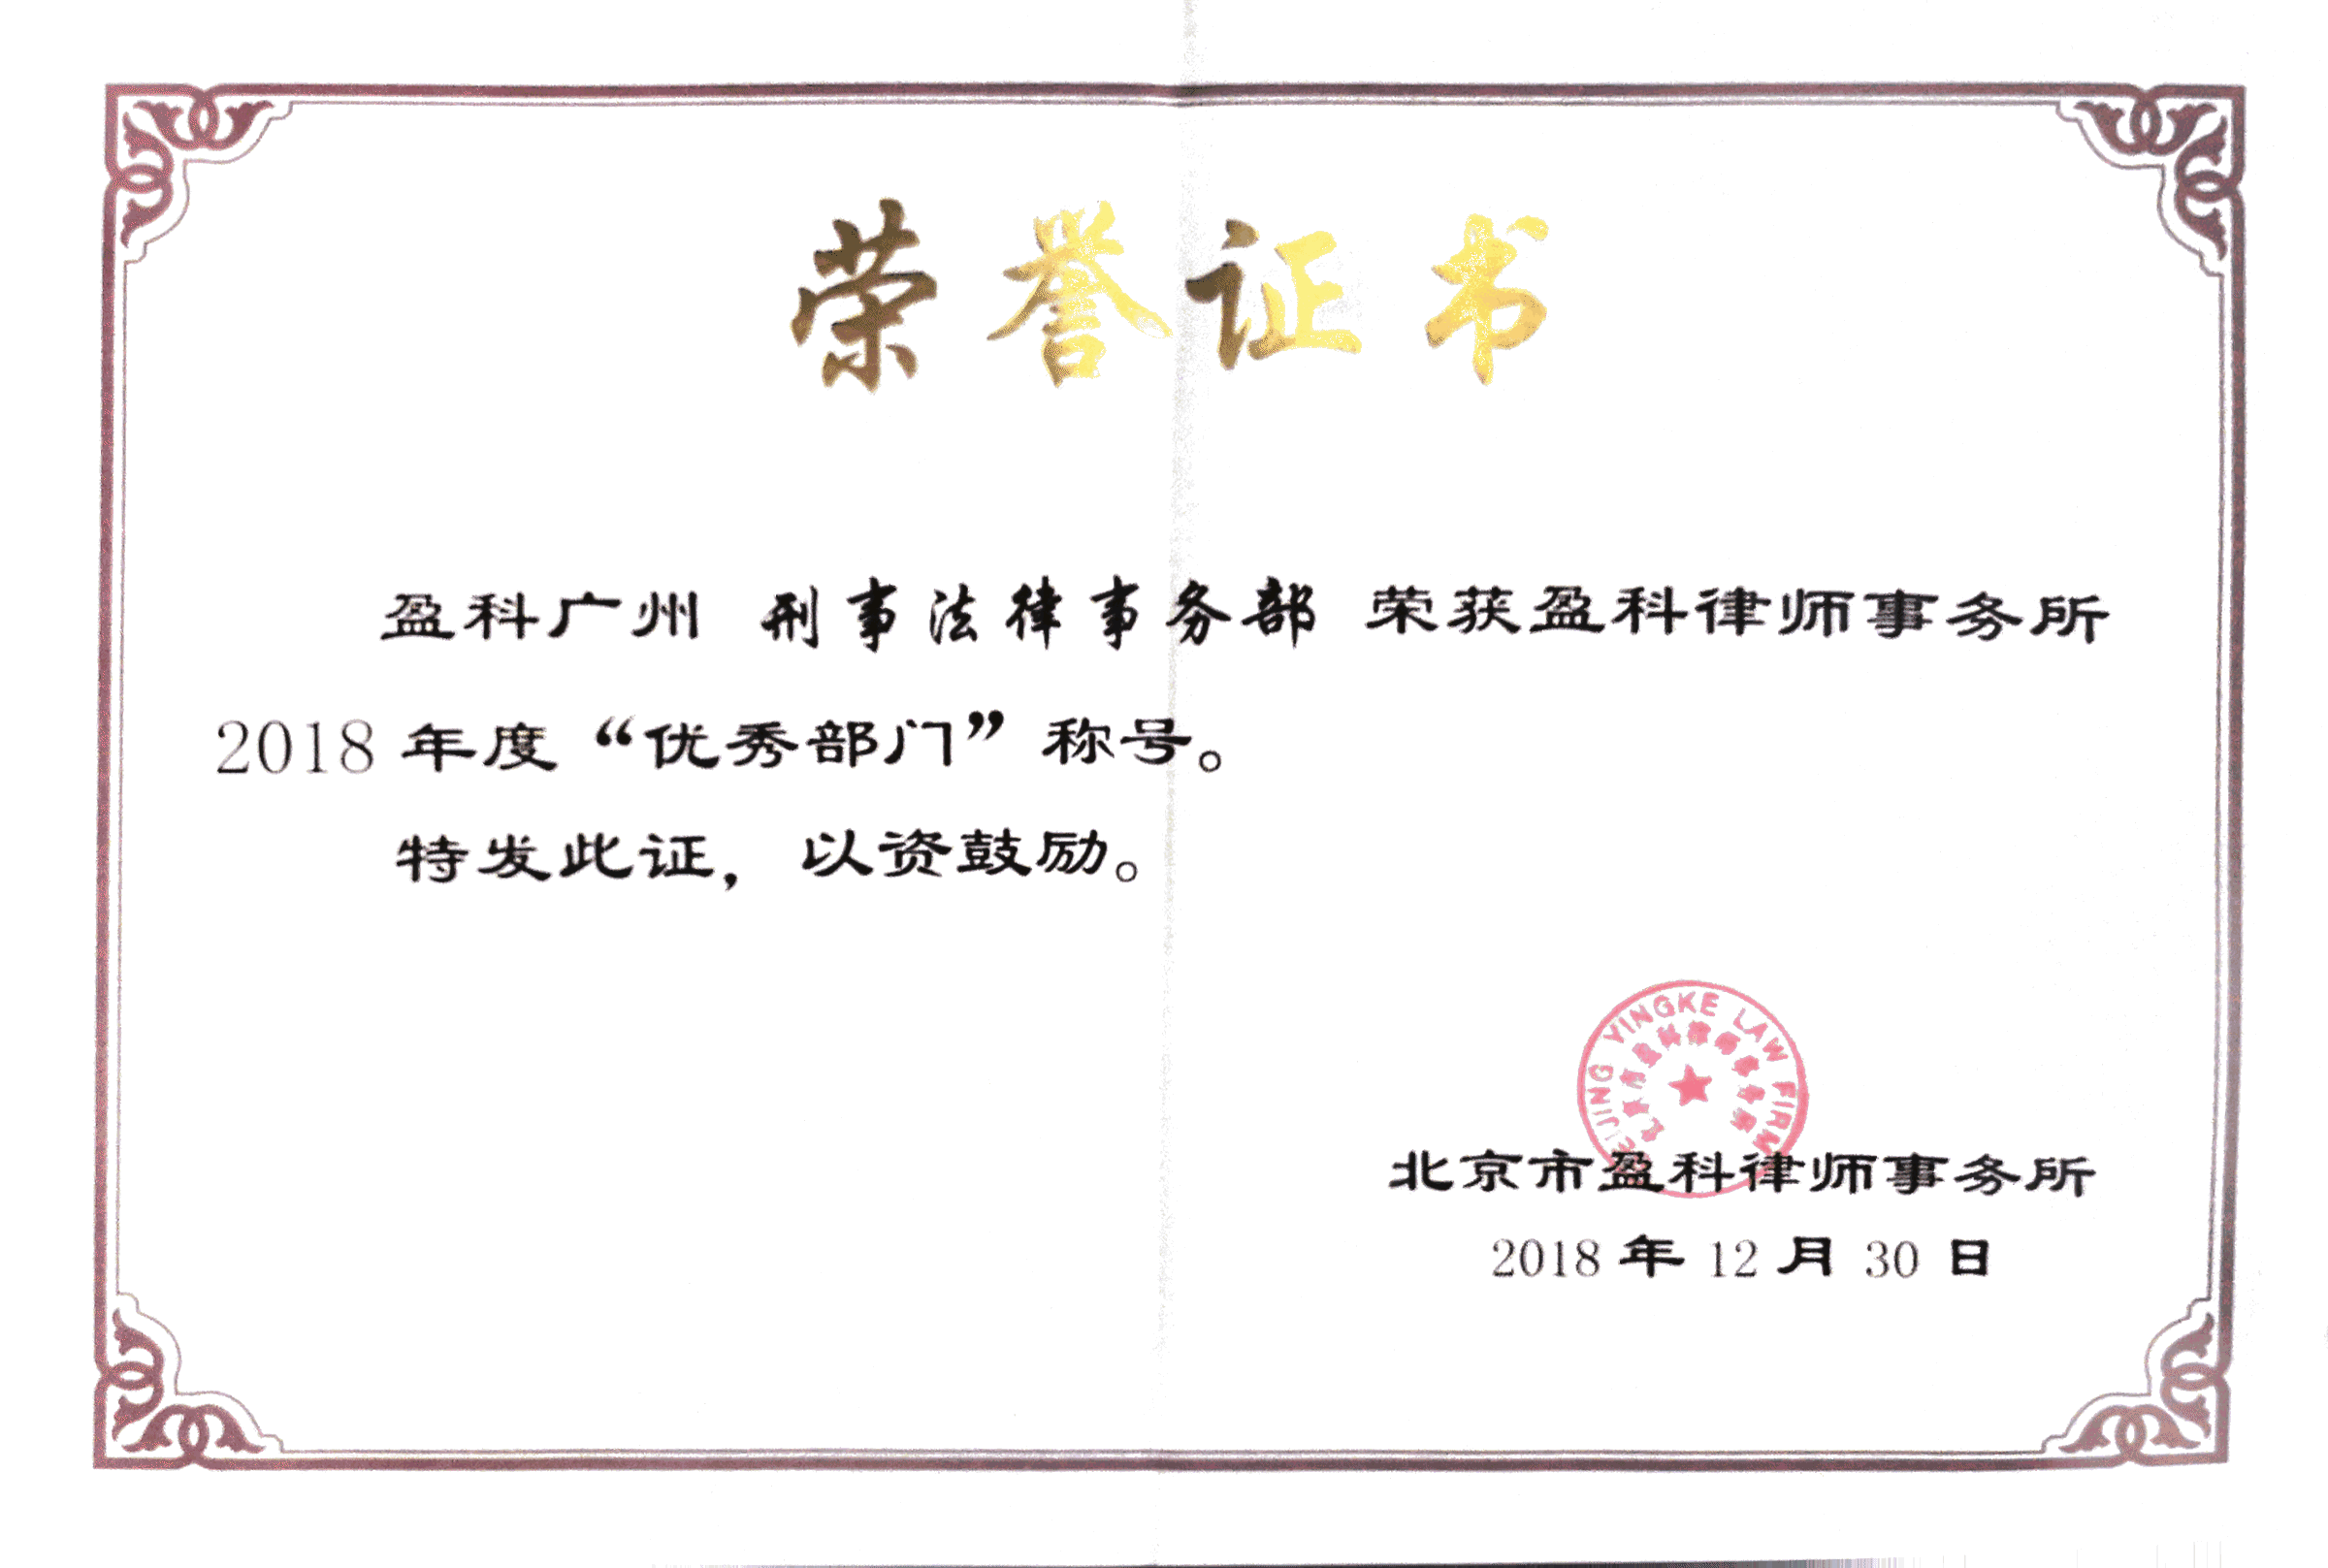 荣誉证书
盈科广州 刑事法律事务部 荣获盈科律师事务所
2018 年度“优秀部门”称号。
特发此证，以资鼓励。
YINGKE LAW FIRM
北京市盈科律师事务所
2018 年 12 月 30 日